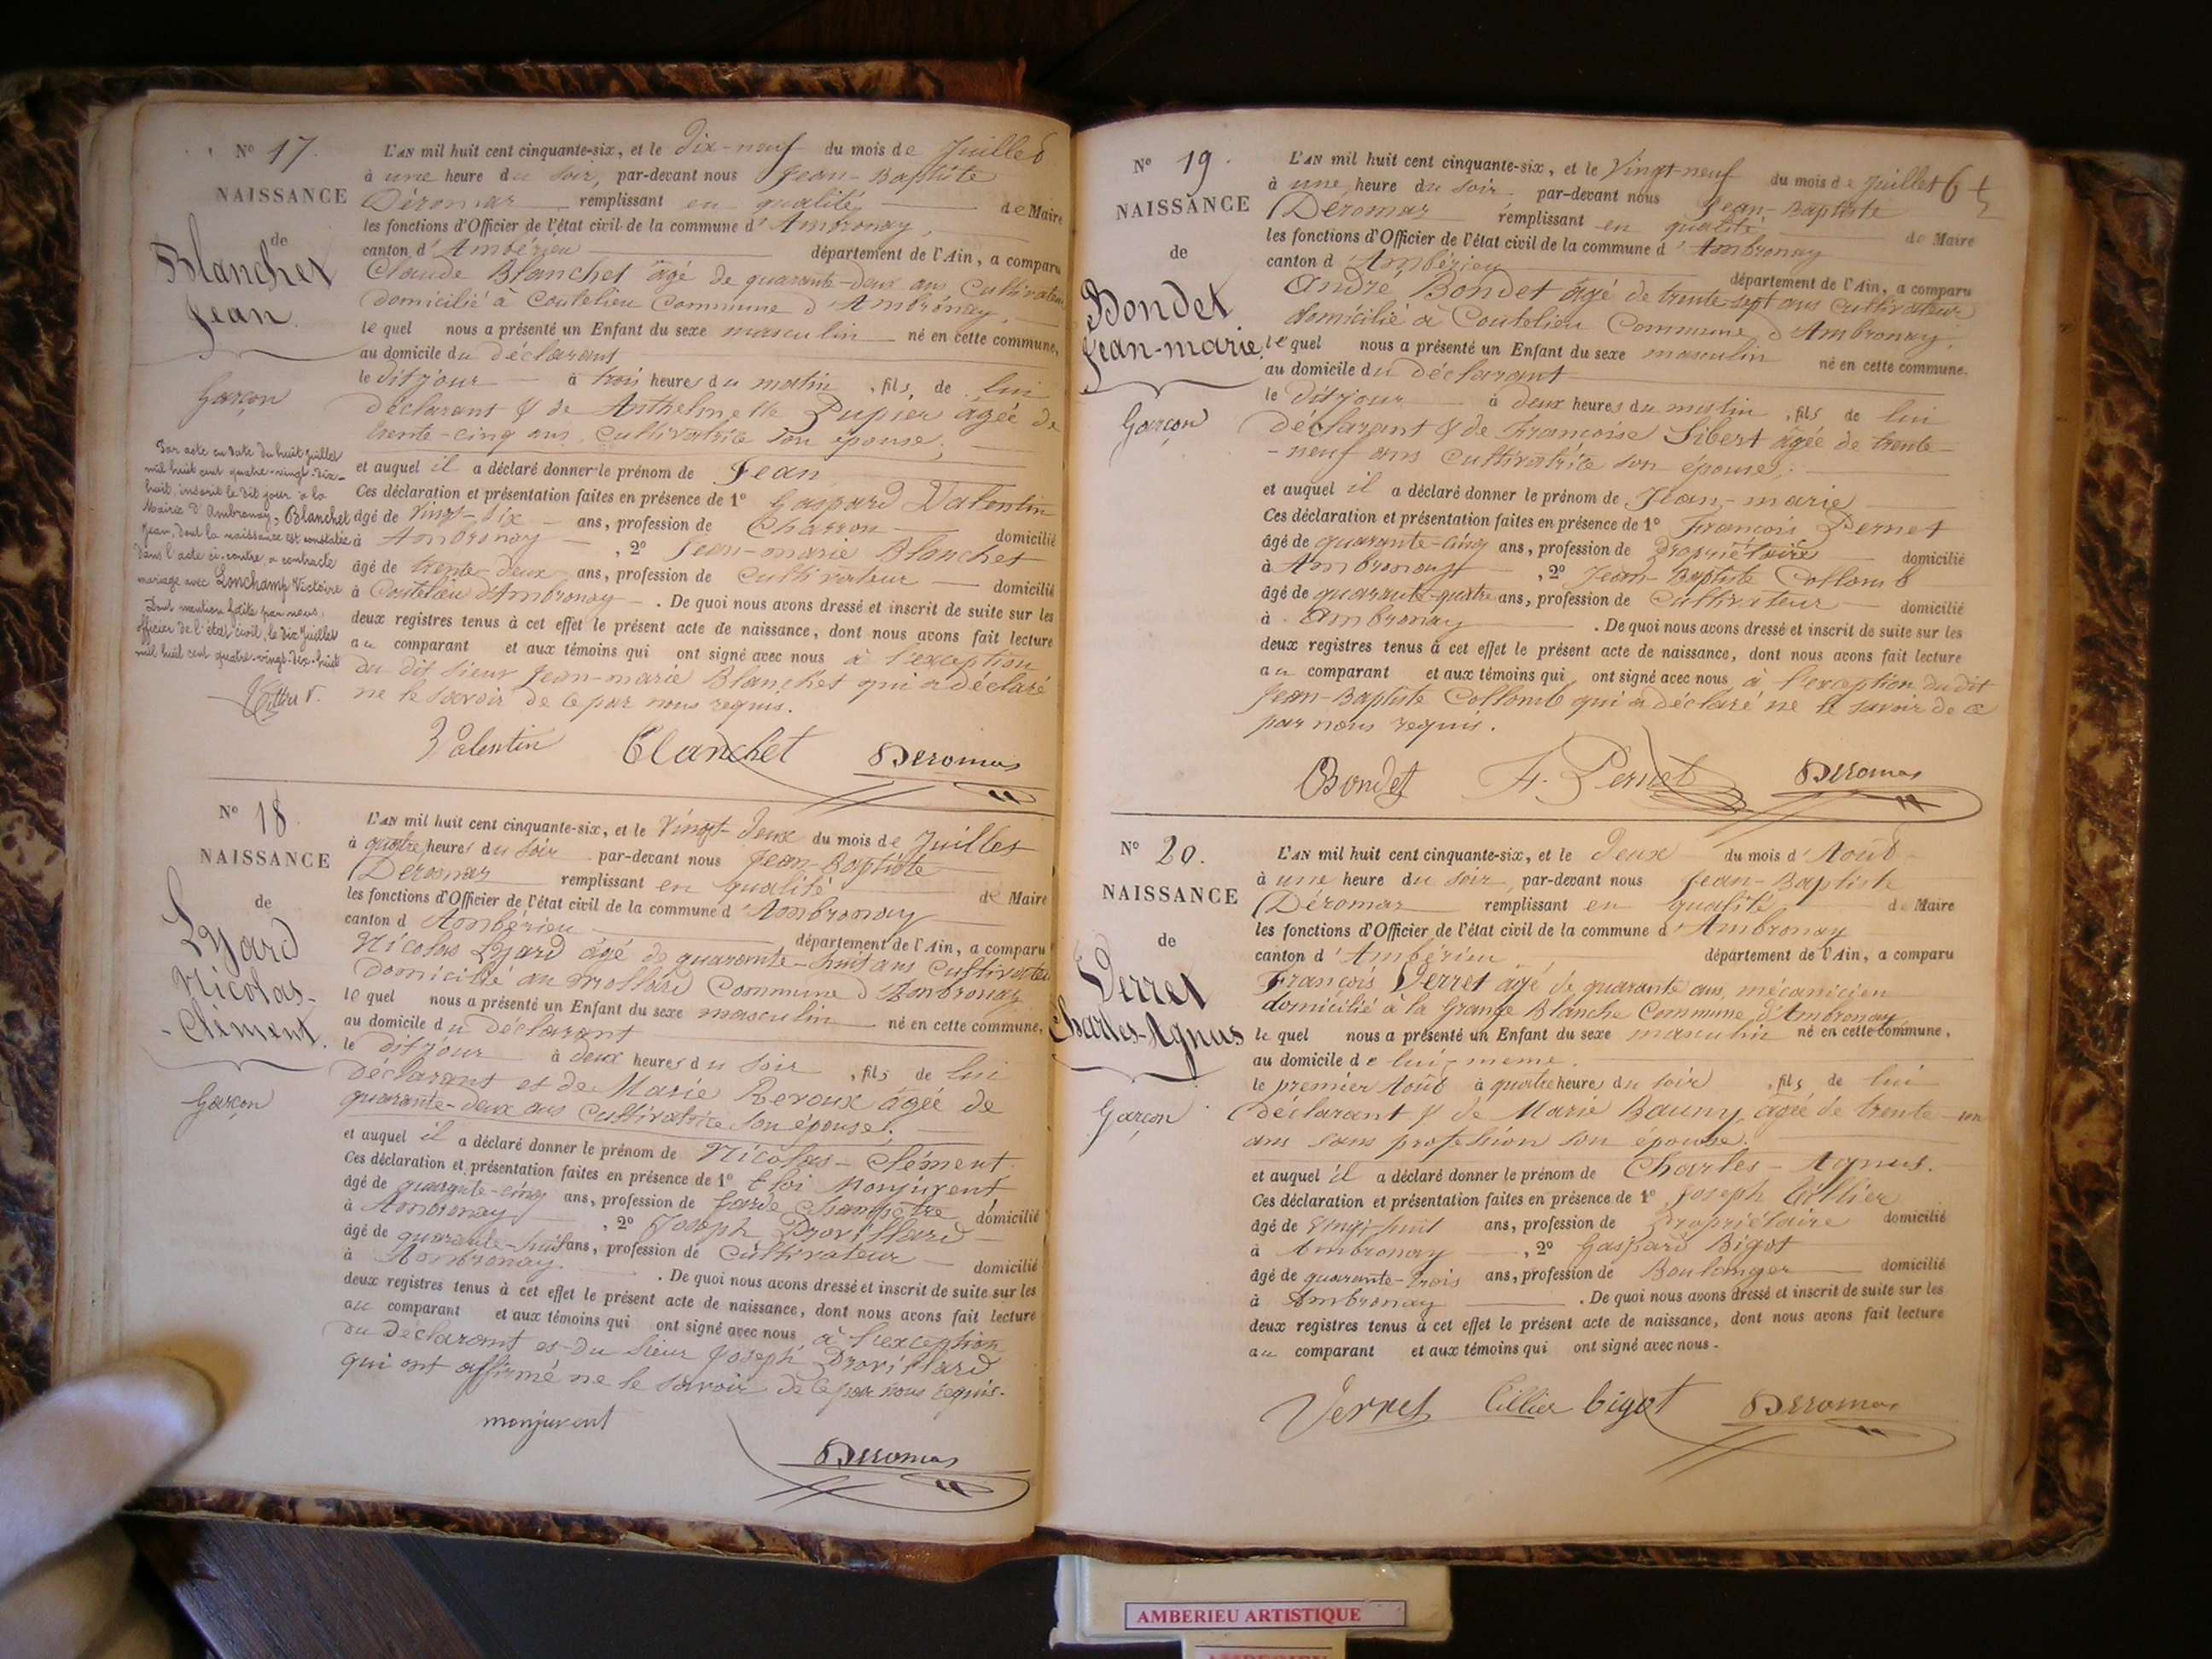 Nº 17.
NAISSANCE
de
Blanchet
Jean.
Garçon
Par acte en date du huit Juillet
mil huit cent quatre-vingt-dix-
huit, inscrit le dit jour à la
Mairie d'Ambronay, Blanchet
Jean, dont la naissance est constatée
dans l'acte ci-contre, a contracté
mariage avec Lonchamp Victoire
Dont mention faite par nous,
officier de l'état civil, le dix Juillet
mil huit cent quatre-vingt-dix-huit
L'AN mil huit cent cinquante-six, et le Dix-neuf du mois de Juillet
à une heure du soir, par-devant nous Jean-Baptiste
Déromas remplissant en qualité de Maire
les fonctions d'Officier de l'état civil de la commune d'Ambronay,
canton d'Ambérieu département de l'Ain, a comparu
Claude Blanchet âgé de quarante-deux ans Cultivateur
domicilié à Coutelieu Commune d'Ambronay,
lequel nous a présenté un Enfant du sexe masculin né en cette commune,
au domicile du déclarant
le dit jour à trois heures du matin, fils de lui
déclarant & de Anthelmette Pupier âgée de
trente-cinq ans, cultivatrice son épouse;
et auquel il a déclaré donner le prénom de Jean
Ces déclaration et présentation faites en présence de 1º Gaspard Valentin
âgé de Vingt-six ans, profession de Charron domicilié
à Ambronay, 2º Jean-marie Blanchet
âgé de trente-deux ans, profession de cultivateur domicilié
à Coutelieu d'Ambronay. De quoi nous avons dressé et inscrit de suite sur les
deux registres tenus à cet effet le présent acte de naissance, dont nous avons fait lecture
au comparant et aux témoins qui ont signé avec nous à l'exception
du dit sieur Jean-marie Blanchet qui a déclaré
ne le savoir de ce par nous requis.
Valentin Blanchet Deromas
Nº 18.
NAISSANCE
de
Lyard
Nicolas-
-Clément.
Garçon
L'AN mil huit cent cinquante-six, et le Vingt-deux du mois de Juillet
à quatre heures du soir par-devant nous Jean-Baptiste
Déromas remplissant en qualité de Maire
les fonctions d'Officier de l'état civil de la commune d'Ambronay
canton d'Ambérieu département de l'Ain, a comparu
Nicolas Lyard âgé de quarante-huit ans Cultivateur
domicilié au Mollard Commune d'Ambronay
lequel nous a présenté un Enfant du sexe masculin né en cette commune,
au domicile du déclarant
le dit jour à deux heures du soir, fils de lui
déclarant et de Marie Reroux âgée de
quarante-deux ans Cultivatrice son épouse;
et auquel il a déclaré donner le prénom de Nicolas-Clément.
Ces déclaration et présentation faites en présence de 1º Eloi Monjuvent
âgé de quarante-cinq ans, profession de Garde Champêtre domicilié
à Ambronay, 2º Joseph Drovillard
âgé de quarante-huit ans, profession de Cultivateur domicilié
à Ambronay. De quoi nous avons dressé et inscrit de suite sur les
deux registres tenus à cet effet le présent acte de naissance, dont nous avons fait lecture
au comparant et aux témoins qui ont signé avec nous à l'exception
du déclarant et du sieur Joseph Drovillard
qui ont affirmé ne le savoir de ce par nous requis.
monjuvent
Deromas
Nº 19.
NAISSANCE
de
Bondet
Jean-marie.
Garçon
6
L'AN mil huit cent cinquante-six, et le Vingt-neuf du mois de Juillet
à une heure du soir par-devant nous Jean-Baptiste
Déromas remplissant en qualité de Maire
les fonctions d'Officier de l'état civil de la commune d'Ambronay
canton d'Ambérieu département de l'Ain, a comparu
André Bondet âgé de trente-sept ans cultivateur
domicilié à Coutelieu Commune d'Ambronay;
lequel nous a présenté un Enfant du sexe masculin né en cette commune.
au domicile du déclarant
le dit jour à deux heures du matin, fils de lui
déclarant & de Francoise Sibert âgée de trente-
-neuf ans cultivatrice son épouse;
et auquel il a déclaré donner le prénom de Jean-marie
Ces déclaration et présentation faites en présence de 1º François Pernet
âgé de quarante-cinq ans, profession de Propriétaire domicilié
à Ambronay, 2º Jean-Baptiste Collomb
âgé de quarante-quatre ans, profession de Cultivateur domicilié
à Ambronay. De quoi nous avons dressé et inscrit de suite sur les
deux registres tenus à cet effet le présent acte de naissance, dont nous avons fait lecture
au comparant et aux témoins qui ont signé avec nous à l'exception du dit
Jean-Baptiste Collomb qui a déclaré ne le savoir de ce
par nous requis.
Bondet F. Pernet Deromas
Nº 20.
NAISSANCE
de
Verret
Charles-Agnus
Garçon
L'AN mil huit cent cinquante-six, et le deux du mois d'Août
à une heure du soir par-devant nous Jean-Baptiste
Déromas remplissant en qualité de Maire
les fonctions d'Officier de l'état civil de la commune d'Ambronay
canton d'Ambérieu département de l'Ain, a comparu
François Verret âgé de quarante ans, mécanicien
domicilié à la Grange Blanche Commune d'Ambronay
lequel nous a présenté un Enfant du sexe masculin né en cette commune,
au domicile de lui-même.
le premier Août à quatre heures du soir, fils de lui
déclarant & de Marie Bauny, âgée de trente-un
ans sans profession son épouse.
et auquel il a déclaré donner le prénom de Charles-Agnus.
Ces déclaration et présentation faites en présence de 1º Joseph Tillier
âgé de Vingt-huit ans, profession de Propriétaire domicilié
à Ambronay, 2º Gaspard Bigot
âgé de quarante-trois ans, profession de Boulanger domicilié
à Ambronay. De quoi nous avons dressé et inscrit de suite sur les
deux registres tenus à cet effet le présent acte de naissance, dont nous avons fait lecture
au comparant et aux témoins qui ont signé avec nous.
Verret Tillier bigot Deromas
AMBERIEU ARTISTIQUE